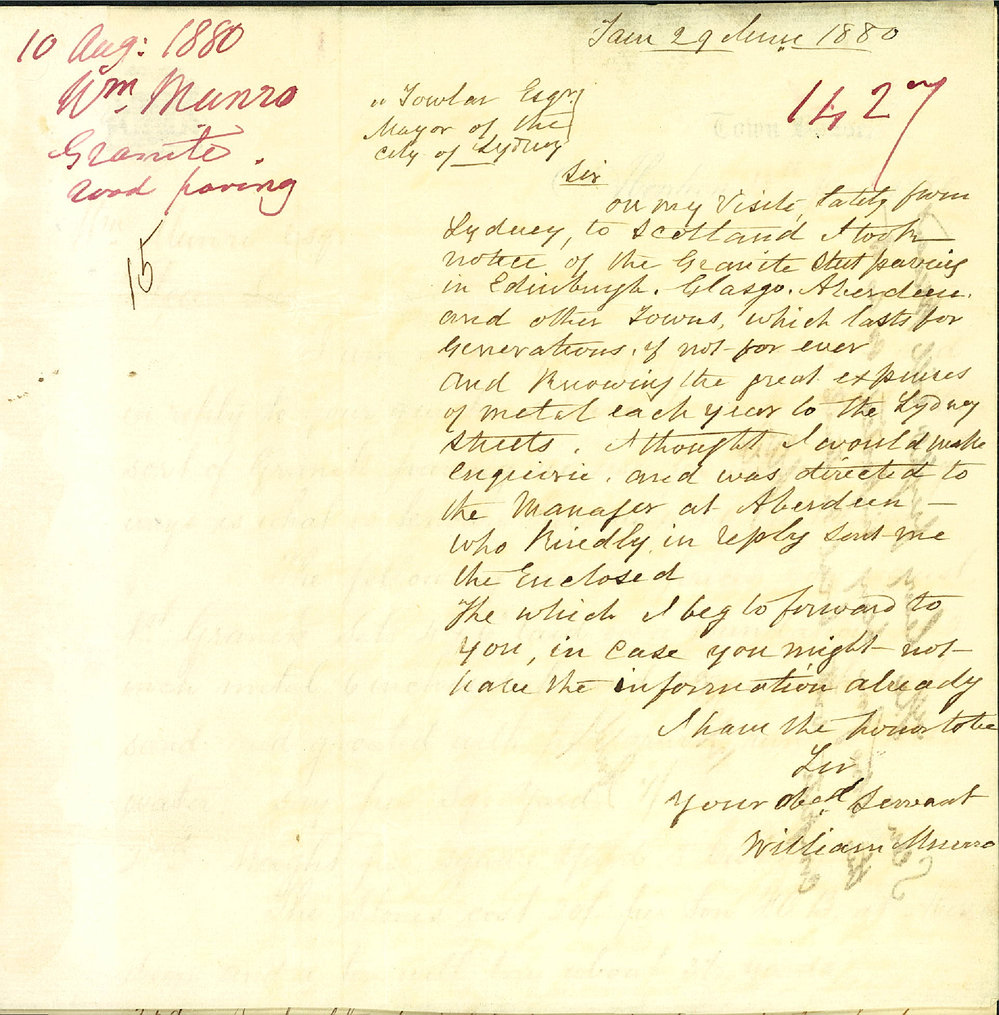 10 Aug: 1880
Wm Munro
Granite
road paving
15
Tain 29 June 1880
1427
" Fowler Esqr
Mayor of the
City of Sydney
Sir
on my Visit, lately from
Sydney, to Scotland I took
notice of the Granite Street paving
in Edinburgh. Glasgo. Aberdeen.
and other Towns, which lasts for
Generations, if not for ever
and Knowing the great expenses
of metal each year to the Sydney
Streets. I thought I would make
Enquirie. and was directed to
the Manager at Aberdeen –
who Kindly in reply sent me
the Enclosed
The which I beg to forward to
you, in case you might not
have the information already
I have the honor to be
Sir
Your obed Servant
William Munro